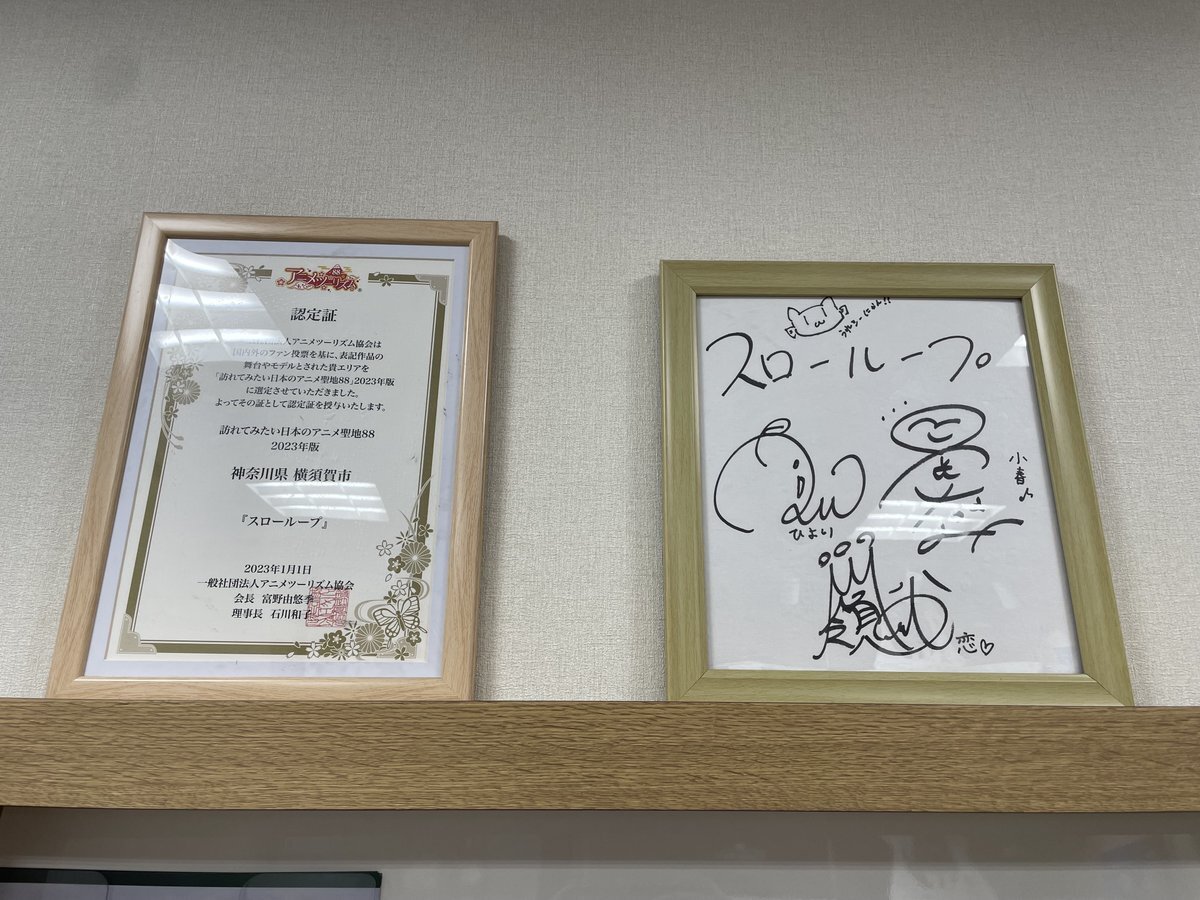 アニメツーリズム
88
認定証
法人アニメツーリズム協会は
国内外のファン投票を基に、表記作品の
舞台やモデルとされた貴エリアを
「訪れてみたい日本のアニメ聖地88」2023年版
に選定させていただきました。
よってその証として認定証を授与いたします。
訪れてみたい日本のアニメ聖地88
2023年版
神奈川県 横須賀市
『スローループ』
2023年1月1日
一般社団法人アニメツーリズム協会
会長 富野由悠季
理事長 石川和子
スローループ
ひより
小春
恋♡